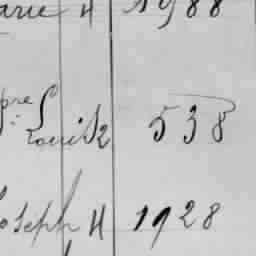 arie H 1988
pre
Louis 2 538
Joseph H 1928